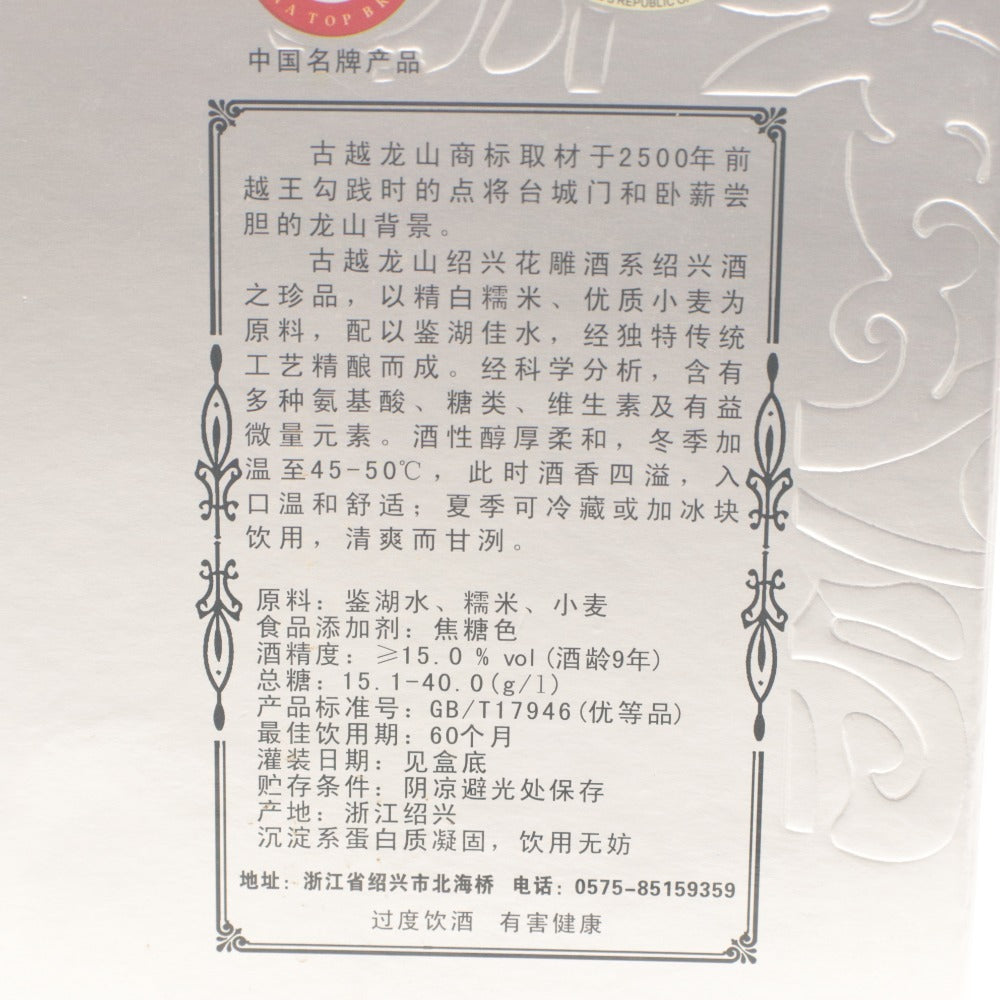 A TOP BR
REPUBLIC O
中国名牌产品
古越龙山商标取材于2500年前
越王勾践时的点将台城门和卧薪尝
胆的龙山背景。
古越龙山绍兴花雕酒系绍兴酒
之珍品，以精白糯米、优质小麦为
原料，配以鉴湖佳水，经独特传统
工艺精酿而成。经科学分析，含有
多种氨基酸、糖类、维生素及有益
微量元素。酒性醇厚柔和，冬季加
温至45-50℃，此时酒香四溢，入
口温和舒适；夏季可冷藏或加冰块
饮用，清爽而甘洌。
原料：鉴湖水、糯米、小麦
食品添加剂：焦糖色
酒精度：≥15.0％vol(酒龄9年)
总糖：15.1-40.0(g/l)
产品标准号：GB/T17946(优等品)
最佳饮用期：60个月
灌装日期：见盒底
贮存条件：阴凉避光处保存
产地：浙江绍兴
沉淀系蛋白质凝固，饮用无妨
地址：浙江省绍兴市北海桥 电话：0575-85159359
过度饮酒 有害健康